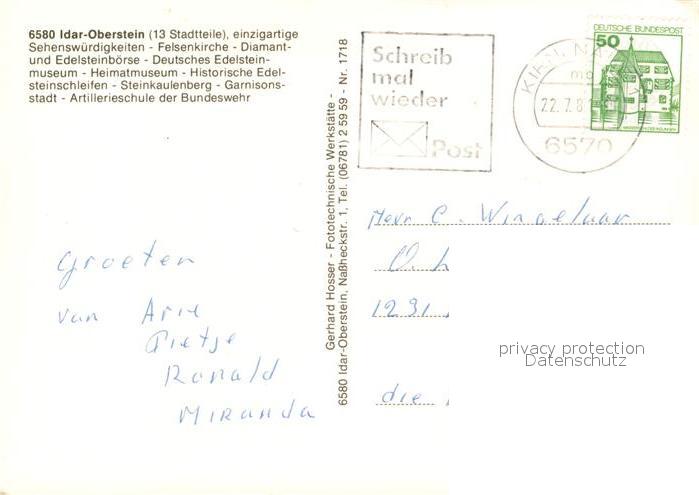 6580 Idar-Oberstein (13 Stadtteile), einzigartige
Sehenswürdigkeiten - Felsenkirche - Diamant-
und Edelsteinbörse - Deutsches Edelstein-
museum - Heimatmuseum - Historische Edel-
steinschleifen - Steinkaulenberg - Garnisons-
stadt - Artillerieschule der Bundeswehr
Groeten
van Arie
Pietje
Ronald
Miranda
Gerhard Hosser - Fototechnische Werkstätte -
6580 Idar-Oberstein, Naßheckstr. 1, Tel. (06781) 2 59 59 - Nr. 1718
Schreib
mal
wieder
Post
22.7.8
6570
DEUTSCHE BUNDESPOST
50
Herr C. Wingelaar
1231
die
privacy protection
Datenschutz